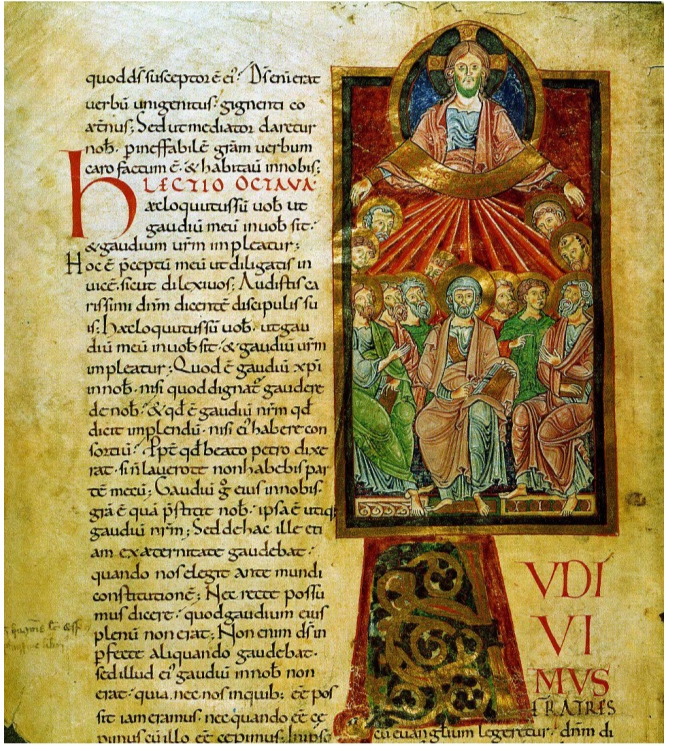 quod dš susceptor ē ei'. Dš eni erat
uerbū unigenitus; gignenti co
æt̄nus; Sed ut mediator daretur
nob̄. p ineffabilē grām uerbum
caro factum ē. & habitauī in nobis;
LECTIO OCTAVA
Hæc loquutus sū uob̄ ut
gaudiū meū in uob̄ sit.
& gaudium urm̄ impleatur;
Hoc ē p̄ceptū meū ut diligatis in
uicē. sicut dilexi uos; Audistis ca
rissimi dn̄m dicentē discipulis su
is; Hæc loquutus sū uob̄. ut gau
diū meū in uob̄ sit. & gaudiū urm̄
impleatur; Quod ē gaudiū xp̄i
in nob̄. nisi quod dignat̄ gaudere
de nob̄. & qd̄ ē gaudiū nrm̄ qd̄
dicit implendū. nisi ei' habere con
sortiū. Ppt̄ qd̄ beato petro dixe
rat. si n̄ lauero te non habebis par
tē mecū; Gaudiū g̊ eius in nobis.
grā ē quā p̄stitit nob̄. ipsa ē utiq;
gaudiū nrm̄; Sed de hac ille eti
am ex æternitate gaudebat.
quando nos elegit ante mundi
constitutionē; Nec recte possū
mus dicere. quod gaudium eius
plenū non erat; Non enim dš in
pfecte aliquando gaudebat.
sed illud ei' gaudiū in nob̄ non
erat. quia nec nos in quib; eē pos
sit iam eramus. nec quando eē ce
pimus cū illo eē cepimus; In ipso
A
VDI
VI
MVS
FRATRES
cū euangelium legeretur. dn̄m di